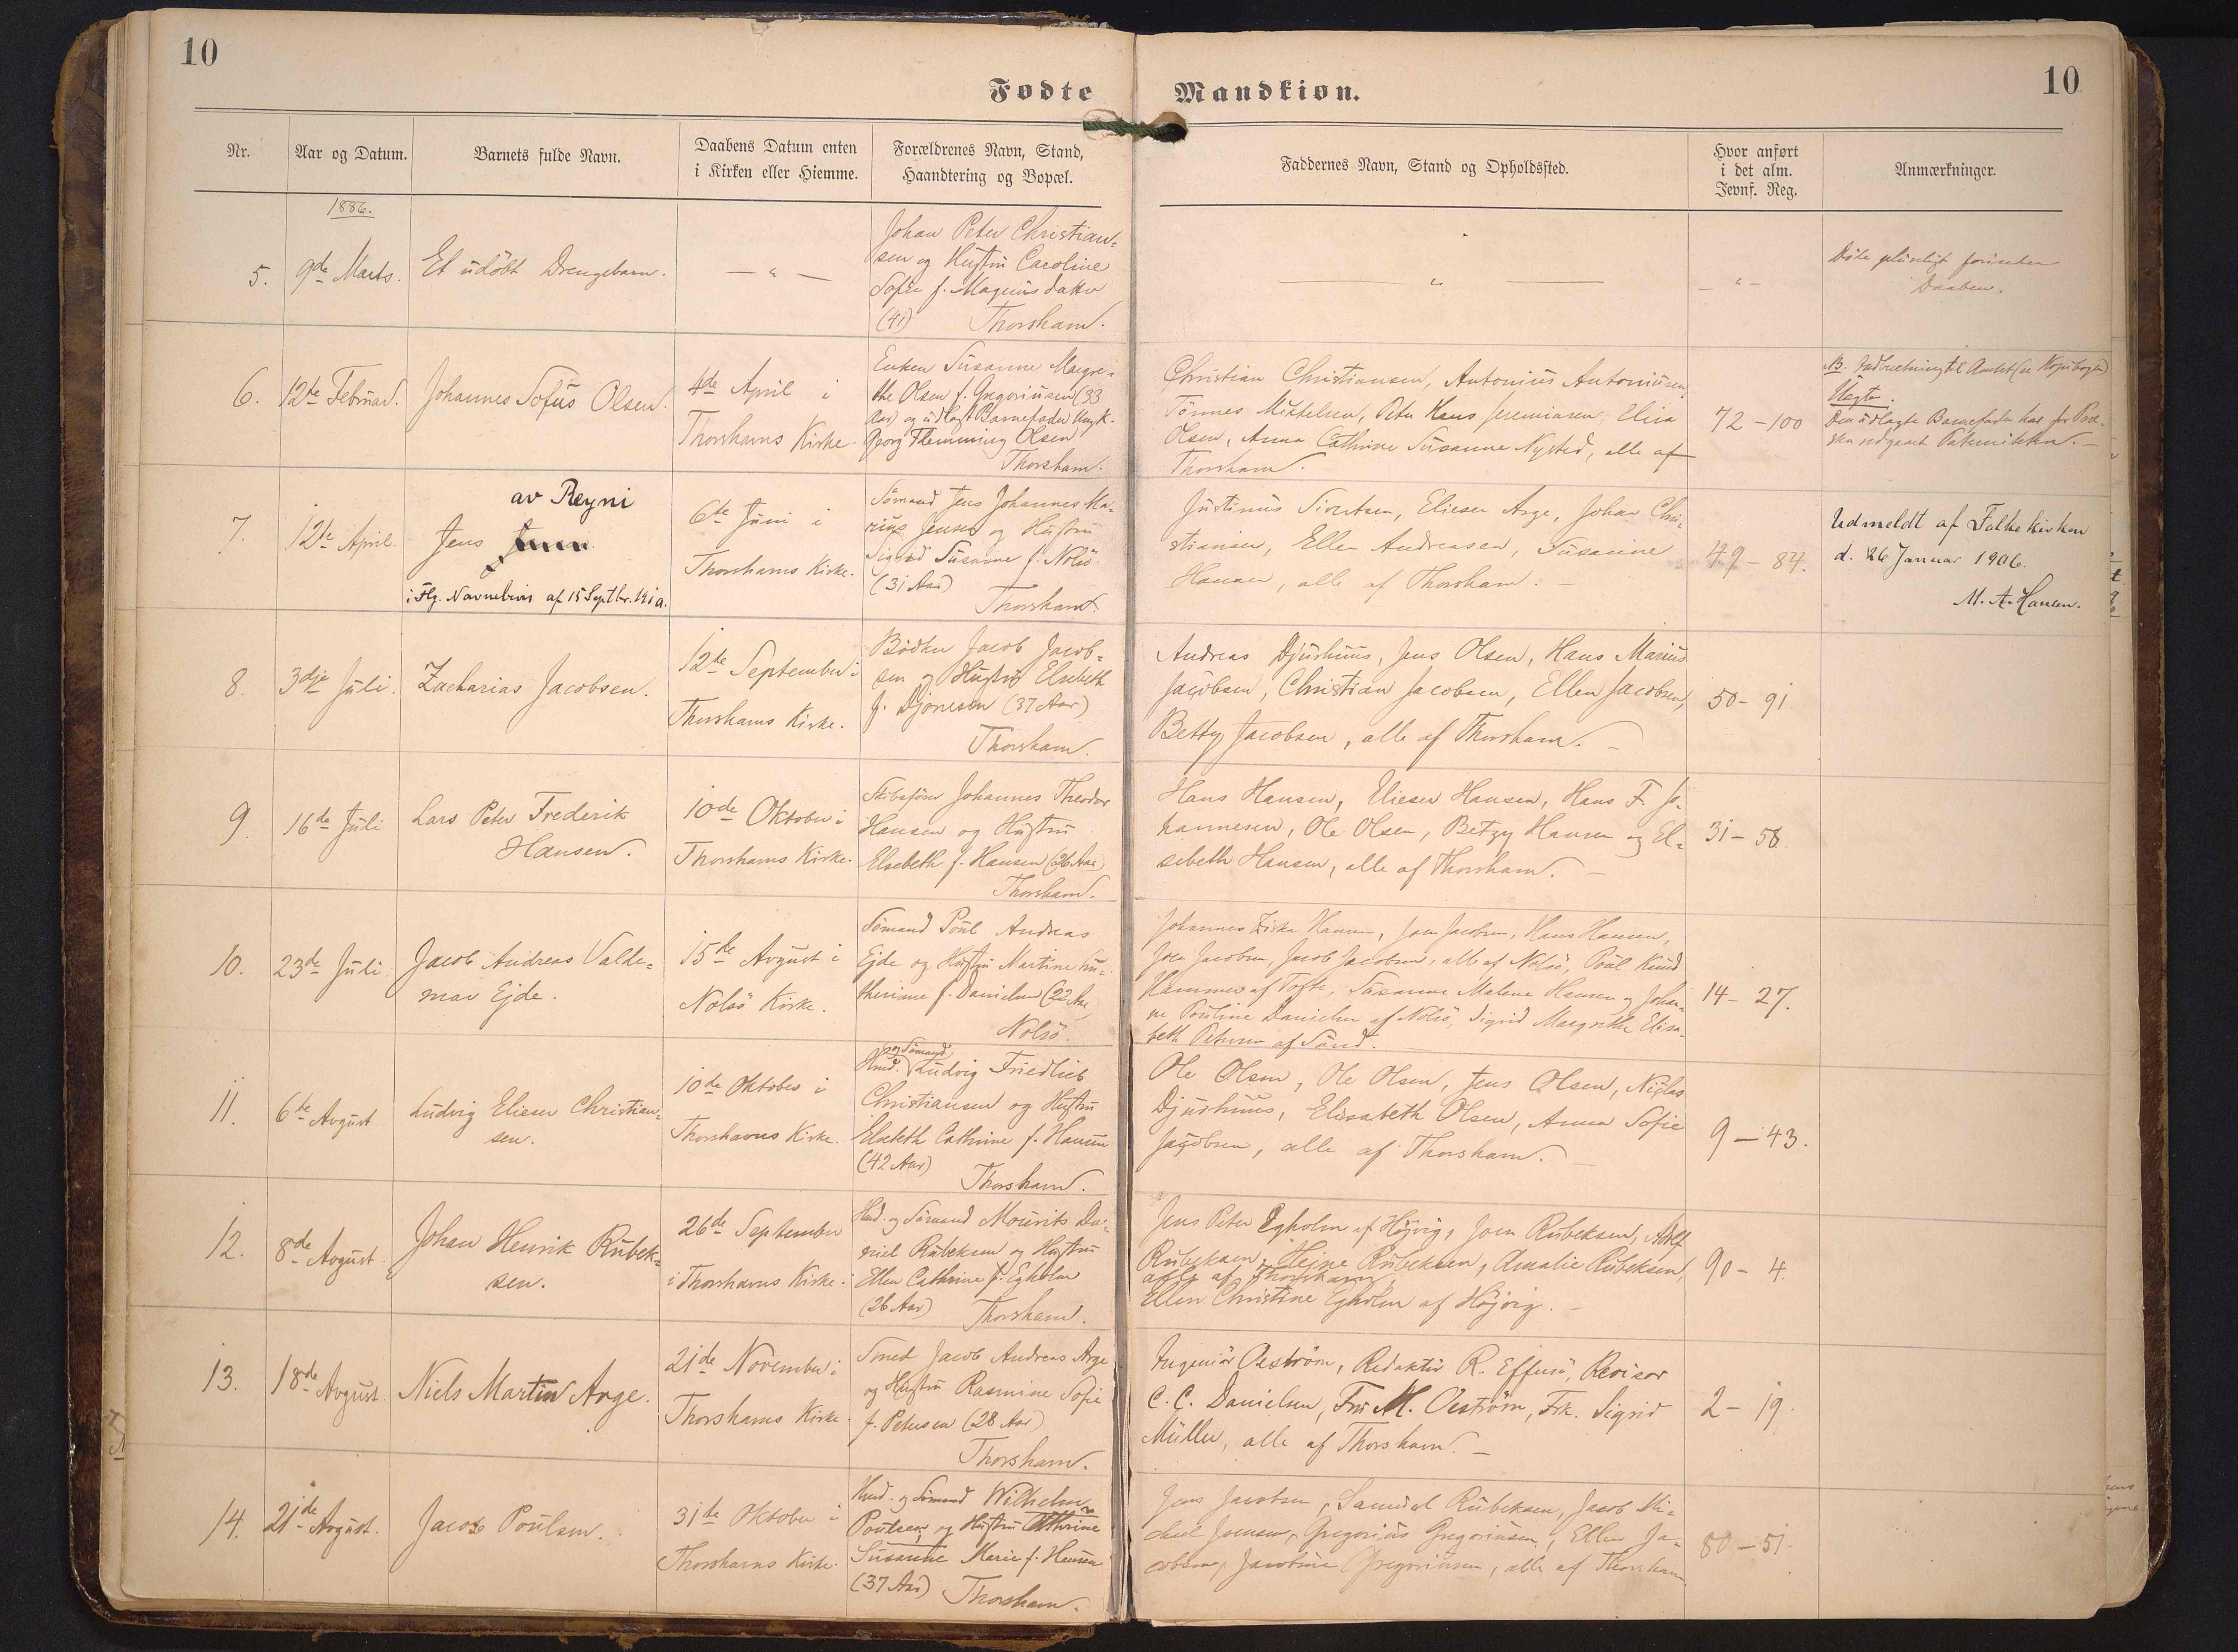 10
10
Fødte
Mandkiøn.
Nr.
Aar og Datum.
Barnets fulde Navn.
Daabens Datum enten
i Kirken eller Hiemme.
Forældrenes Navn, Stand,
Haandtering og Bopæl.
Faddernes Navn, Stand og Opholdssted.
Hvor anført
i det alm.
Jevnf. Reg.
Anmærkninger.
1886.
5.
9de Marts.
Et udöbt Drengebarn.
— " —
Johan Peter Christian=
sen og Hustru Caroline
Sofie f. Magnusdatter
(41) Thorshavn.
— " —
— " —
Döde pludseligt forinden
Daaben.
6.
12te Februar.
Johannes Sofus Olsen.
4de April i
Thorshavns Kirke.
Enken Susanne Margre=
the Olsen f. Gregoriusen (33
Aar) og udlagt Barnefader Ungk.
Georg Flemming Olsen
Thorshavn.
Christian Christiansen, Antonius Antoniusen,
Tönnes Mikkelsen, Peter Hans Jeremiasen, Elisa
Olsen, Anna Cathrine Susanne Nysted, alle af
Thorshavn.
72 – 100
NB. Indberetning til Amtet (se Kopibogen)
Uægte.
Den udlagte Barnefader har for Præ=
sten vedgaaet Paterniteten. –
7.
12te April.
av Reyni
Jens
i Flg. Navnebevis af 15 Septbr.
6te Juni i
Thorshavns Kirke.
Sömand Jens Johannes Ma=
rius Jensen og Hustru
Sigrid Susanne f. Nolsö
(31 Aar)
Thorshavn.
Justinus Sivertsen, Elieser Arge, Johan Chri=
stiansen, Ellen Andreasen, Susanne
Hansen, alle af Thorshavn. –
49 – 84.
Udmeldt af Folkekirken
d. 26 Januar 1906.
M. A. Hansen.
8.
3dje Juli.
Zacharias Jacobsen.
12te September i
Thorshavns Kirke.
Bödker Jacob Jacob=
sen og Hustru Elsebeth
f. Djonesen (37 Aar)
Thorshavn.
Andreas Djurhuus, Jens Olsen, Hans Marius
Jacobsen, Christian Jacobsen, Ellen Jacobsen,
Betty Jacobsen, alle af Thorshavn. –
50 – 91
9.
16de Juli
Lars Peter Frederik
Hansen.
10de Oktober i
Thorshavns Kirke.
Skibsförer Johannes Theodor
Hansen og Hustru
Elsebeth f. Hansen (26 Aar)
Thorshavn.
Hans Hansen, Elieser Hansen, Hans F. Jo=
hannesen, Ole Olsen, Betzy Hansen og El=
sebeth Hansen, alle af Thorshavn. –
31 – 58.
10.
23de Juli
Jacob Andreas Valde=
mar Ejde.
15de August i
Nolsö Kirke.
Sömand Poul Andreas
Ejde og Hustru Martine
f. Danielsen (22 Aar)
Nolsö.
Johannes Hansen, Joen Jacobsen, Hans Hansen,
Joen Jacobsen, Jacob Jacobsen, alle af Nolsö, Poul
Hammer af Tofte, Susanne Malene Hansen og Johan=
ne Pouline Danielsen af Nolsö, Sigrid Margrethe Elisa=
beth Petersen af Sand.
14 – 27.
11.
6te August.
Ludvig Elieser Christian=
sen.
10de Oktober i
Thorshavns Kirke.
Hmd. og Sömand Ludvig Friedlieb
Christiansen og Hustru
Elsebeth Cathrine f. Hansen
(42 Aar)
Thorshavn.
Ole Olsen, Ole Olsen, Jens Olsen, Niclas
Djurhuus, Elisabeth Olsen, Anna Sofie
Jacobsen, alle af Thorshavn. –
9 – 43.
12.
8de August
Johan Henrik Rubek=
sen.
26de September
i Thorshavns Kirke.
Hmd. og Sömand Mourits Da=
niel Rubeksen og Hustru
Ellen Cathrine f. Egholm
(26 Aar) Thorshavn.
Jens Peter Egholm af Höjvig, Joen Rubeksen, Adolf
Rubeksen, Hejne Rubeksen, Amalie Rubeksen,
alle af Thorshavn,
Ellen Christine Egholm af Höjvig. –
90 – 4.
13.
18de August.
Niels Martin Arge.
21de November i
Thorshavns Kirke.
Smed Jacob Andreas Arge
og Hustru Rasmine Sofie
f. Petersen (28 Aar)
Thorshavn.
Ingeniör Oeström, Redaktör R. Effersö, Revisor
C. C. Danielsen, Fru M. Oeström, Frk. Sigrid
Müller, alle af Thorshavn. –
2 – 19.
14.
21de August.
Jacob Poulsen.
31te Oktober i
Thorshavns Kirke.
Hmd. og Sömand Wilhelm
Poulsen og Hustru Cathrine
Susanne Marie f. Hansen
(37 Aar) Thorshavn.
Jens Jacobsen, Samuel Rubeksen, Jacob Mi=
chael Joensen, Gregorius Gregoriusen, Ellen Ja=
cobsen, Jacobine Gregoriusen, alle af Thorshavn.
80 – 51.